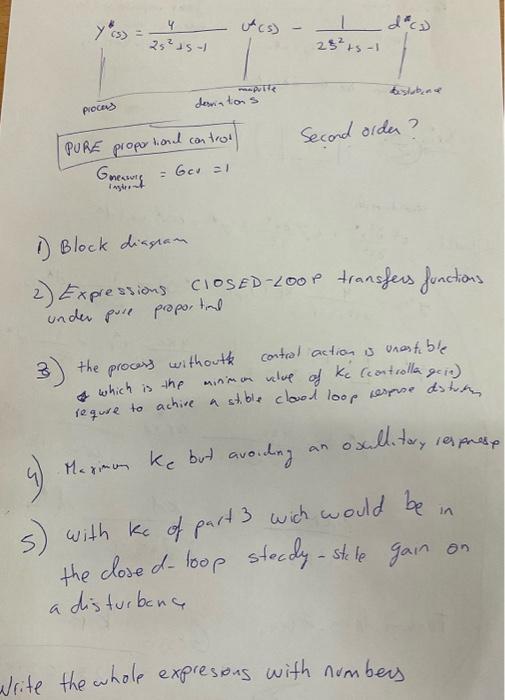 y*(s) = 4 / (2s²+s-1) u*(s) - 1 / (2s²+s-1) d*(s)
process deviations
PURE proportional control Second order?
G measure = Gcv = 1
1) Block diagram
2) Expressions CLOSED-LOOP transfers functions
under pure proportinal
3) the process without control action is
which is the minimum value of Kc (controlla gain)
requre to achive a stible closed loop response
4) Maximum Kc but avoiding an response
5) with Kc of part 3 wich would be in
the closed-loop steady-state gain on
a disturbance
Write the whole expresions with numbers